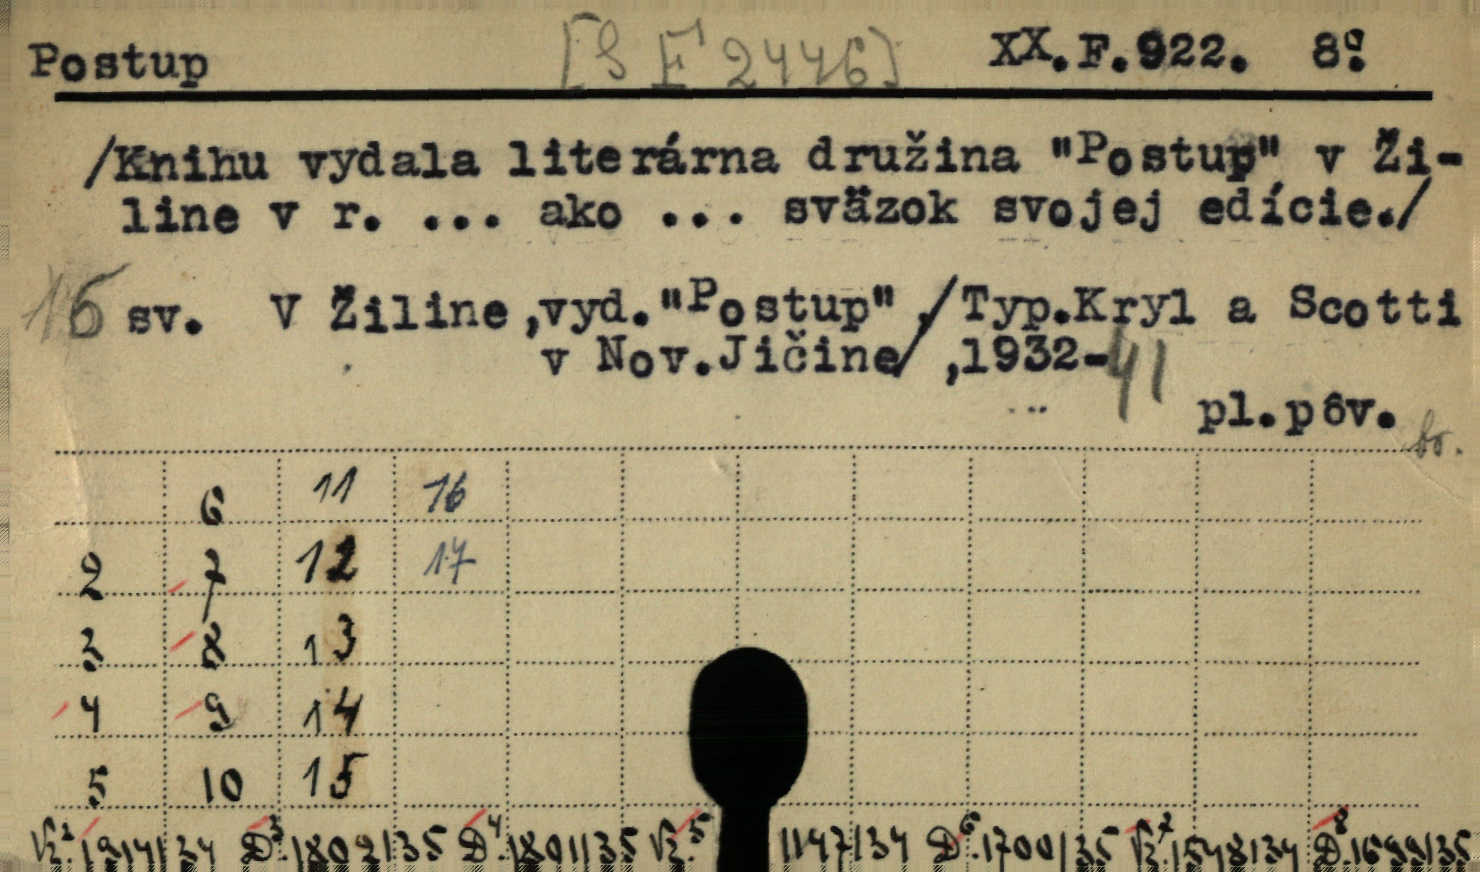 Postup [S E 2446] XX.F.922. 8°
/Knihu vydala literárna družina "Postup" v Ži-
line v r. ... ako ... sväzok svojej edície./
16 sv. V Žiline,vyd."Postup",/Typ.Kryl a Scotti
v Nov.Jičine/,1932-41
pl.pôv.
6 11 16
2 7 12 17
3 8 13
4 9 14
5 10 15
D³. 1802/35 D⁴. 1801/35 1147/34 D⁶. 1700/35 1548/34 D⁸. 1699/35